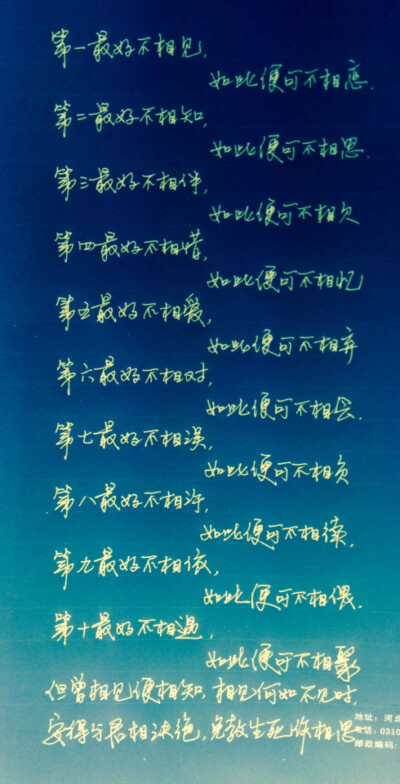 第一最好不相见,
如此便可不相恋.
第二最好不相知,
如此便可不相思.
第三最好不相伴,
如此便可不相欠
第四最好不相惜,
如此便可不相忆
第五最好不相爱,
如此便可不相弃
第六最好不相对,
如此便可不相会.
第七最好不相误,
如此便可不相负
第八最好不相许,
如此便可不相续.
第九最好不相依,
如此便可不相偎.
第十最好不相遇,
如此便可不相聚
但曾相见便相知,相见何如不见时,
安得与君相决绝,免教生死作相思
地址:河北
电话:0310
邮政编码: